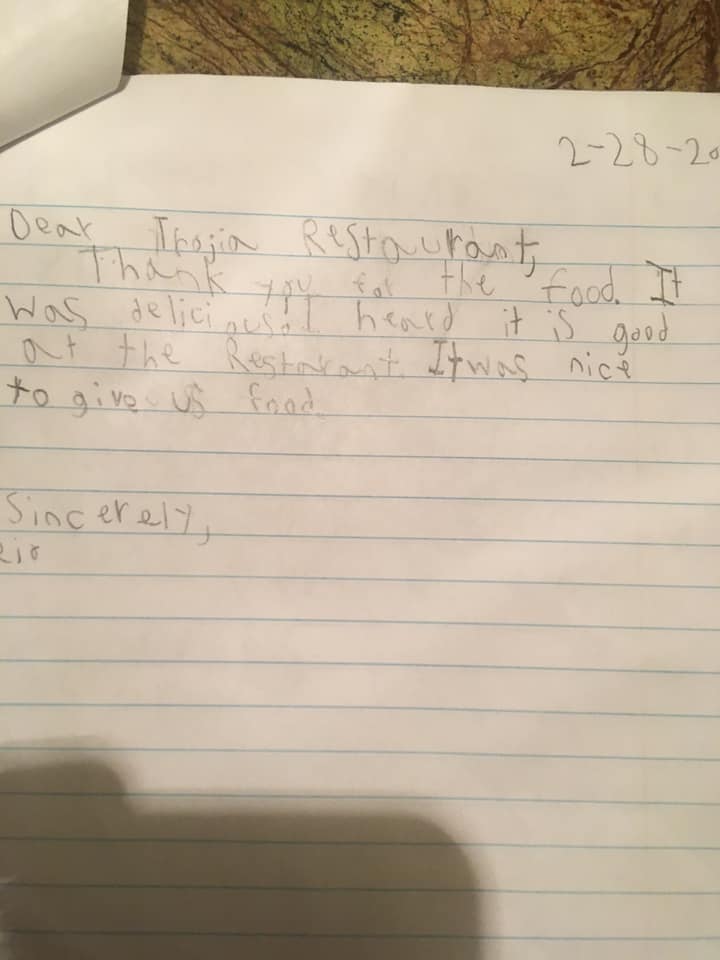 2-28-20
Dear Trojia Restaurant,
Thank you for the food. It
was delicious. I heard it is good
at the Restarant. It was nice
to give us food.
Sincerely,